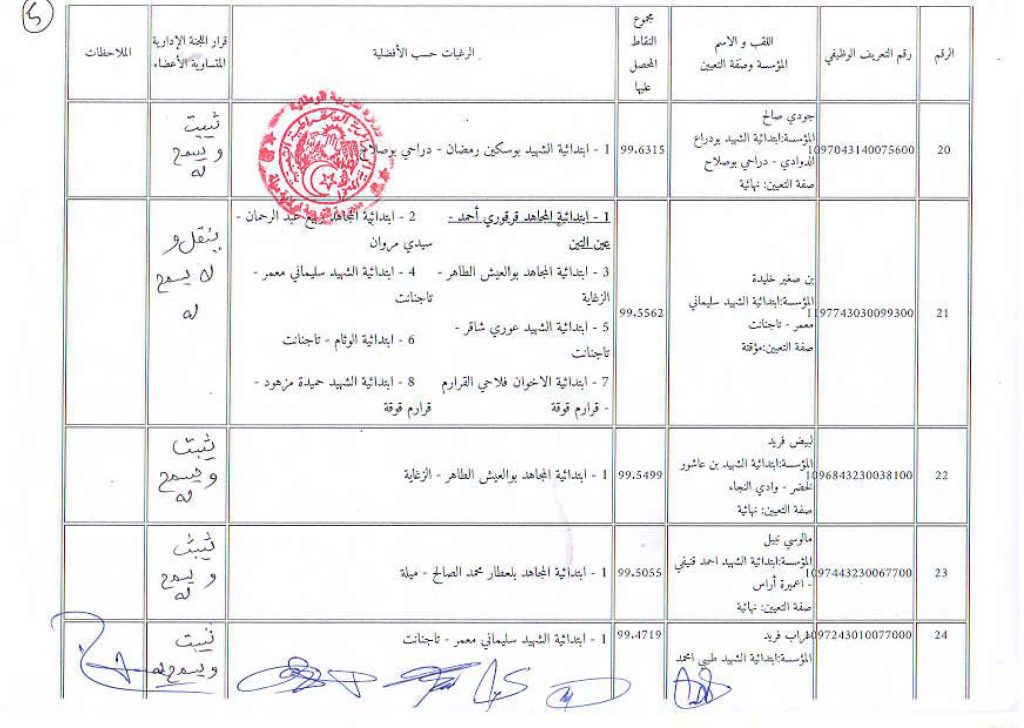 5
الرقم
رقم التعريف الوظيفي
اللقب و الاسم
المؤسسة وصفة التعيين
مجموع
النقاط
المحصل
عليها
الرغبات حسب الأفضلية
قرار اللجنة الإدارية
المتساوية الأعضاء
الملاحظات
20
1097043140075600
جودي صالح
المؤسسة:ابتدائية الشهيد بودراع
الدوادي - دراحي بوصلاح
صفة التعيين: نهائية
99.6315
1 - ابتدائية الشهيد بوسكين رمضان - دراحي بوصلاح
ثبيت
و يسمح
له
21
1197743030099300
بن صغير خليدة
المؤسسة:ابتدائية الشهيد سليماني
معمر - تاجنانت
صفة التعيين:مؤقتة
99.5562
1 - ابتدائية المجاهد قرقوري أحمد -
عين التين
2 - ابتدائية المجاهد ربيع عبد الرحمان -
سيدي مروان
3 - ابتدائية المجاهد بوالعيش الطاهر -
الزغاية
4 - ابتدائية الشهيد سليماني معمر -
تاجنانت
5 - ابتدائية الشهيد عوري شاقر -
تاجنانت
6 - ابتدائية الوئام - تاجنانت
7 - ابتدائية الاخوان فلاحي القرارم
- قرارم قوقة
8 - ابتدائية الشهيد حميدة مزهود -
قرارم قوقة
ينقل و
لا يسمح
له
22
1096843230038100
لبيض فريد
المؤسسة:ابتدائية الشهيد بن عاشور
لخضر - وادي النجاء
صفة التعيين: نهائية
99.5499
1 - ابتدائية المجاهد بوالعيش الطاهر - الزغاية
يثبت
و يسمح
له
23
1097443230067700
مالوسي نبيل
المؤسسة:ابتدائية الشهيد احمد قنيفي
- اعميرة أراس
صفة التعيين: نهائية
99.5055
1 - ابتدائية المجاهد بلعطار محمد الصالح - ميلة
يثبت
و يسمح
له
24
1097243010077000
غراب فريد
المؤسسة:ابتدائية الشهيد طيبي امحمد
99.4719
1 - ابتدائية الشهيد سليماني معمر - تاجنانت
ثبيت
و يسمح له